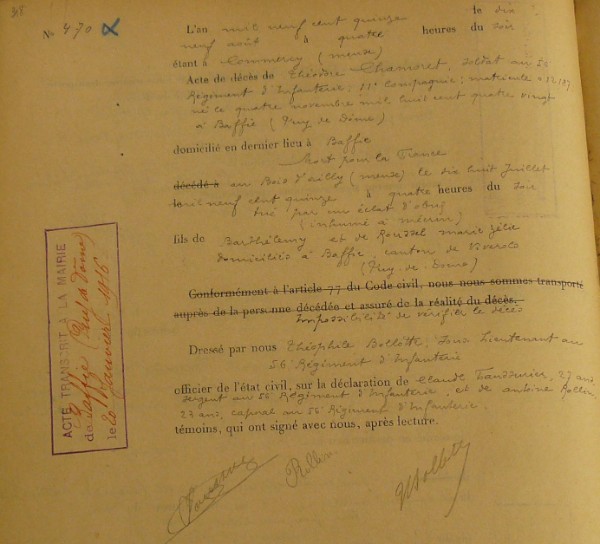 N° 470
L'an mil neuf cent quinze le dix
neuf août à quatre heures du soir
étant à Commercy (meuse)
Acte de décès de Théodore Chamoret, soldat au 56
Régiment d'Infanterie, 11e Compagnie; matricule
né le quatre novembre mil huit cent quatre vingt
à Baffie (Puy de Dôme)
domicilié en dernier lieu à Baffie
Mort pour la France
décédé à au Bois d'ailly (meuse) le dix huit Juillet
le mil neuf cent quinze à quatre heures du soir
tué par un éclat d'obus
(inhumé à mécrin)
fils de Barthélemy et de Roussel marie
domiciliés à Baffie, canton de Viverols
(Puy-de-Dôme)
Conformément à l'article 77 du Code civil, nous nous sommes transporté
auprès de la personne décédée et assuré de la réalité du décès,
Impossibilité de vérifier le décès
Dressé par nous Théophile Bollotte, Sous Lieutenant au
56 Régiment d'Infanterie
officier de l'état civil, sur la déclaration de Claude 27 ans,
sergent au 56 Régiment d'Infanterie, et de antoine Rollin,
23 ans, caporal au 56 Régiment d'Infanterie.
témoins, qui ont signé avec nous, après lecture.
Rollin
ACTE TRANSCRIT A LA MAIRIE
de Baffie (Puy de Dôme)
le 20 Janvier 1916